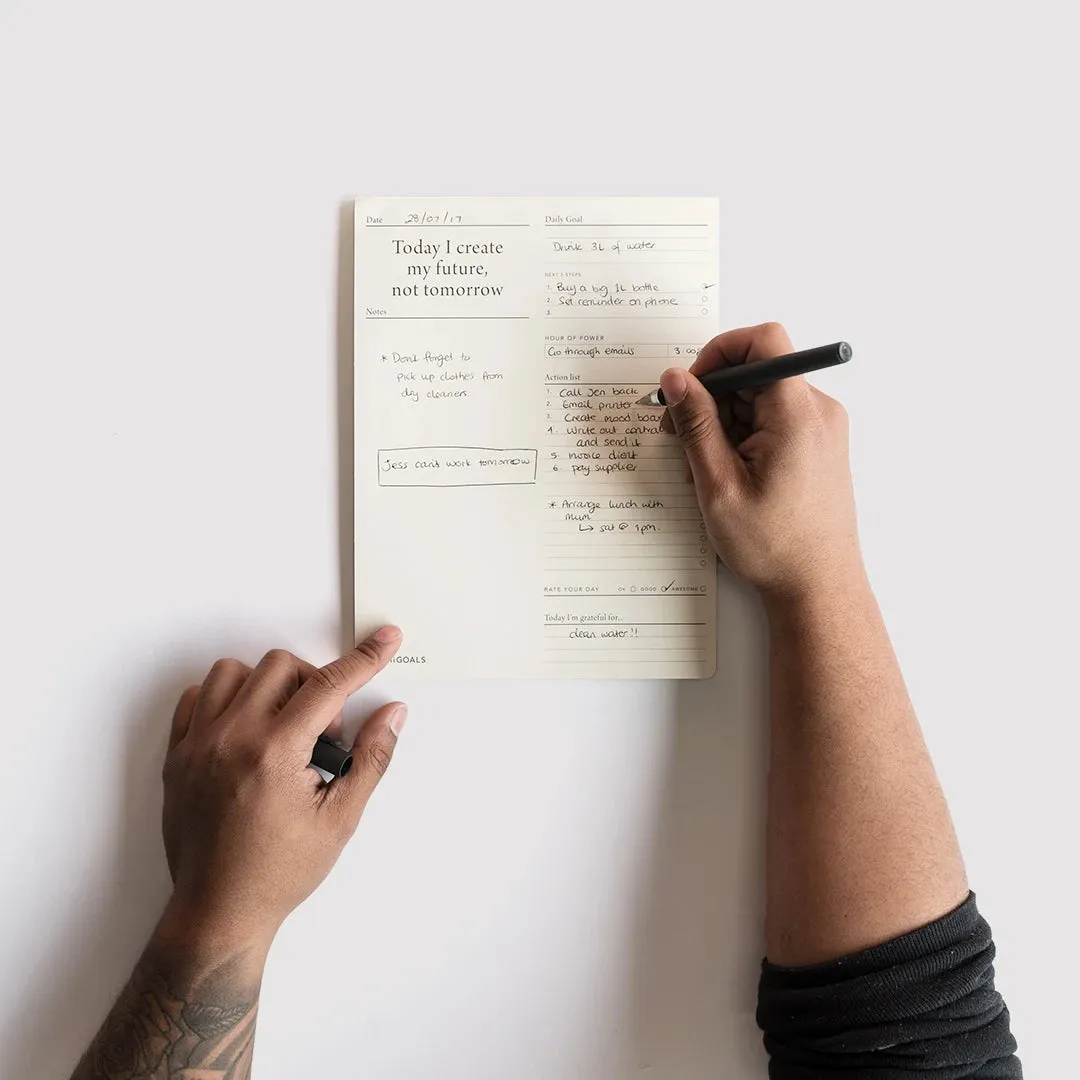 Date 28/07/17
Today I create
my future,
not tomorrow
Notes
* Dont forget to
pick up clothes from
dry cleaners
Jess can't work tomorrow
GOALS
Daily Goal
Drink 3L of water
NEXT 3 STEPS
1. Buy a big 1L bottle
2. Set reminder on phone
3.
HOUR OF POWER
Go through emails 3:00
Action list
1. Call Jen back
2. Email printer
3. Create mood
4. Write out
and send it
5. Invoice client
6. pay supplier
* Arrange lunch with
mum
↳ sat @ 1pm.
RATE YOUR DAY OK GOOD AWESOME
Today I'm grateful for...
clean water!!